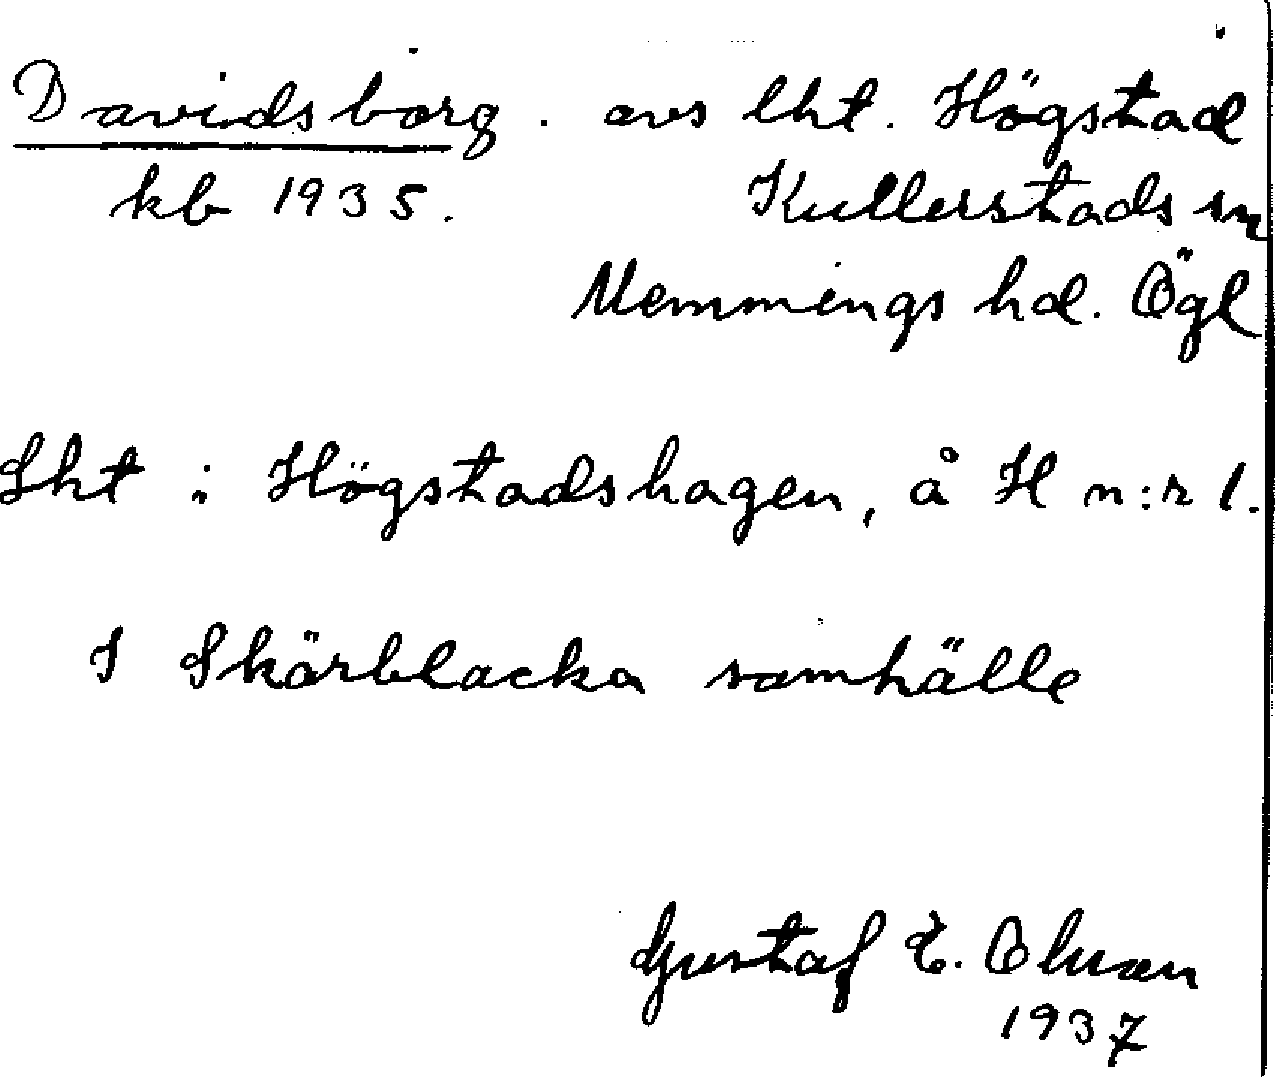 Davidsborg. avs lht. Högstad
kb 1935. Kullerstads sn
Memmings hd. Ögl
Lht i Högstadshagen, å H n:r 1.
I Skärblacka samhälle
Gustaf E. Olson
1937